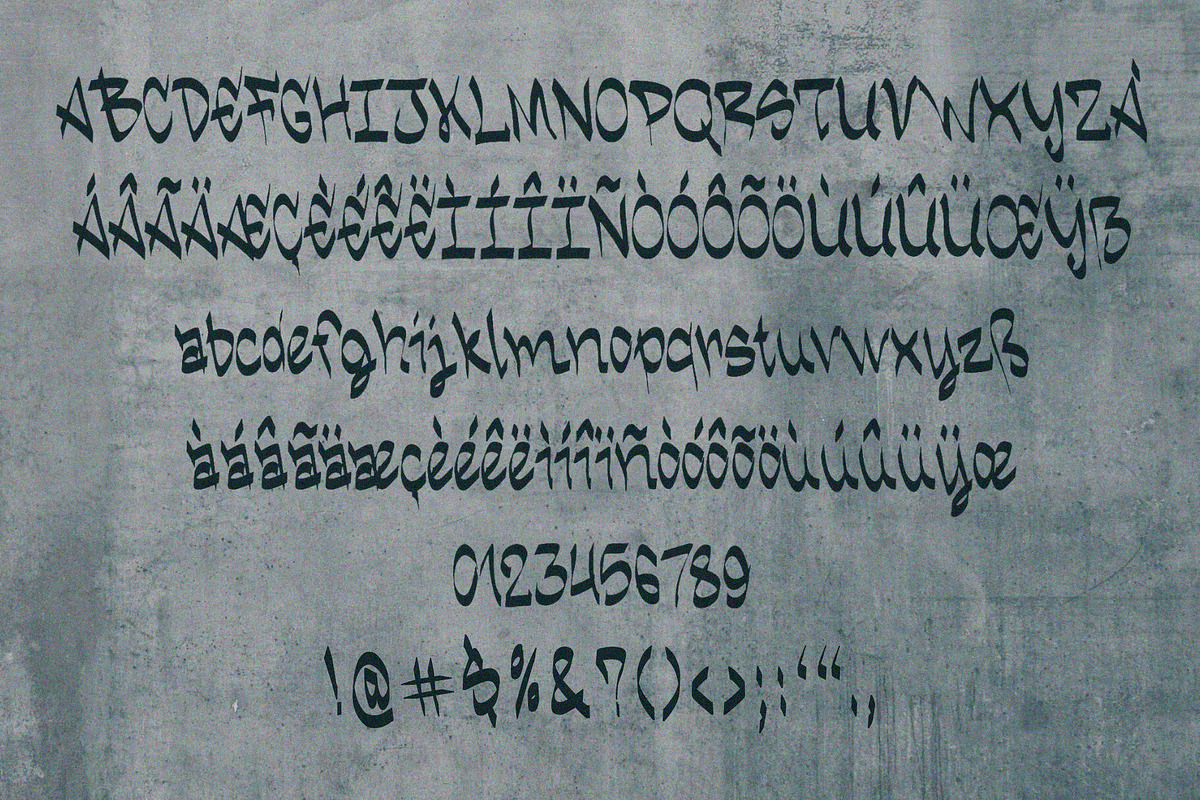 ABCDEFGHIJKLMNOPQRSTUVWXYZÀ
ÁÂÃÄÆÇÈÉÊËÌÍÎÏÑÒÓÔÕÖÙÚÛÜŒŸß
abcdefghijklmnopqrstuvwxyzß
àáâãäæçèéêëìíîïñòóôõöùúûüÿœ
0123456789
!@#$%&?()<>;:‘“.,